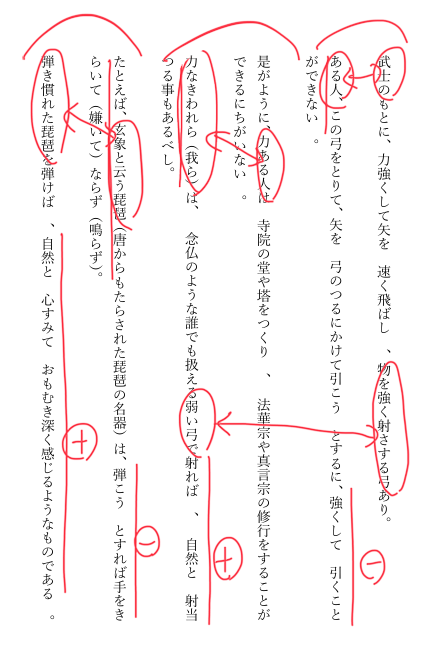 武士のもとに、力強くして矢を　速く飛ばし　、物を強く射さする弓あり。
ある人、この弓をとりて、矢を　弓のつるにかけて引こう　とするに、強くして　引くこと
ができない　。
是がように、力ある人は　寺院の堂や塔をつくり　、　法華宗や真言宗の修行をすることが
できるにちがいない　。
力なきわれら（我ら）は、　念仏のような誰でも扱える弱い弓で射れば　、　自然と　射当
つる事もあるべし。
たとえば、玄象と云う琵琶（唐からもたらされた琵琶の名器）は、弾こう　とすれば手をき
らいて（嫌いて）ならず（鳴らず）。
弾き慣れた琵琶を弾けば　、自然と　心すみて　おもむき深く感じるようなものである　。
－
＋
－
＋